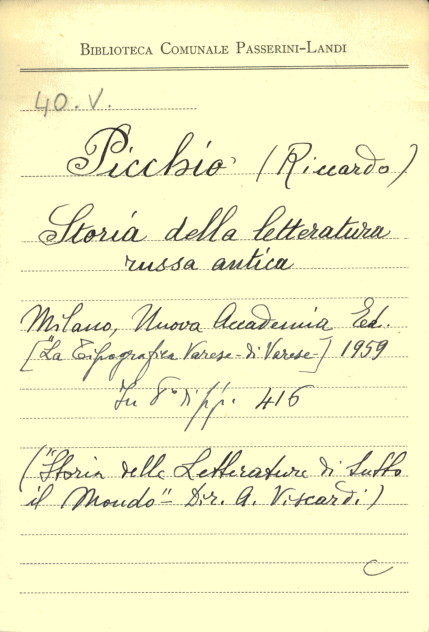 BIBLIOTECA COMUNALE PASSERINI-LANDI
40.V.
Picchio (Riccardo)
Storia della letteratura
russa antica
Milano, Nuova Accademia Ed.
["La Tipografica Varese-di Varese-] 1959
In 8° di pp. 416
("Storia delle Letterature di tutto
il Mondo"- Dir. A. Viscardi)
C